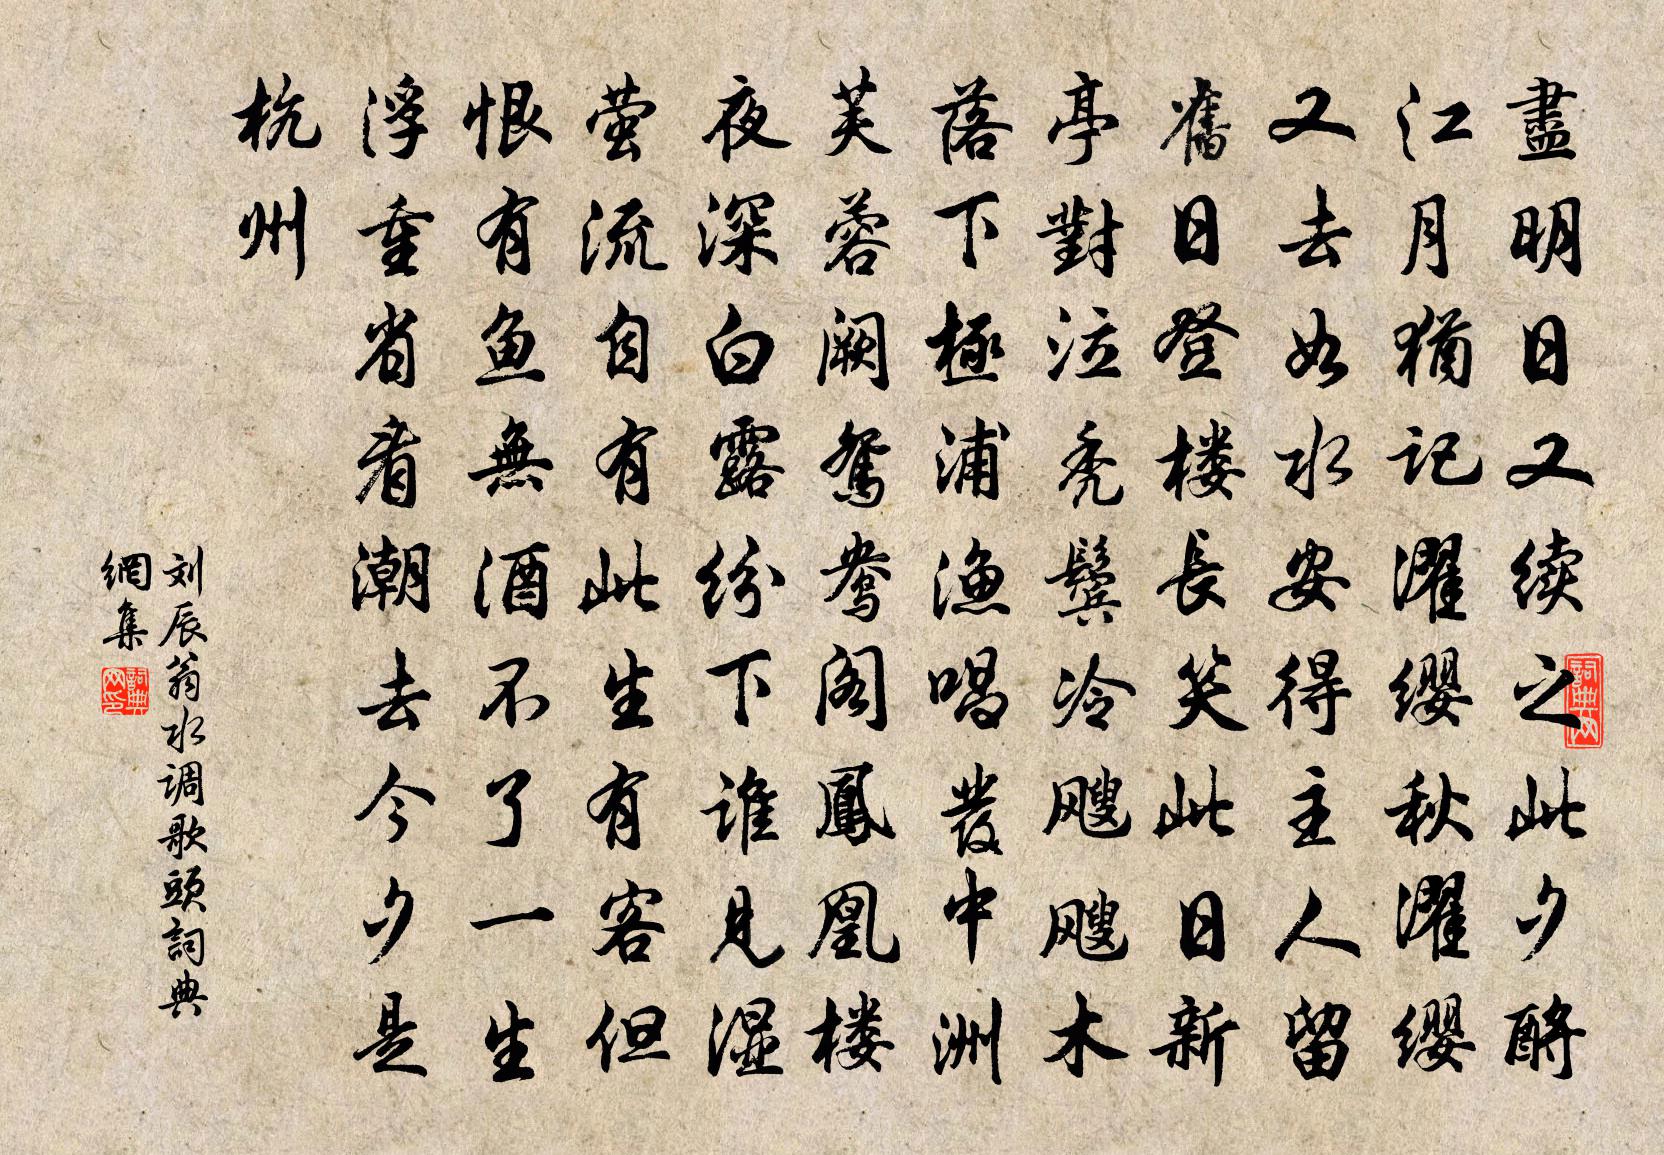 盡明日又续之此夕酹
江月猶记濯缨秋濯缨
又去如水安得主人留
舊日登楼長笑此日新
亭對泣秃鬓冷飕飕木
落下極浦渔唱發中洲
芙蓉阙鸳鸯阁鳳凰楼
夜深白露纷下谁見湿
萤流自有此生有客但
恨有鱼無酒不了一生
浮重省看潮去今夕是
杭州
刘辰翁水调歌頭詞典
網集
詞典网
詞典网印